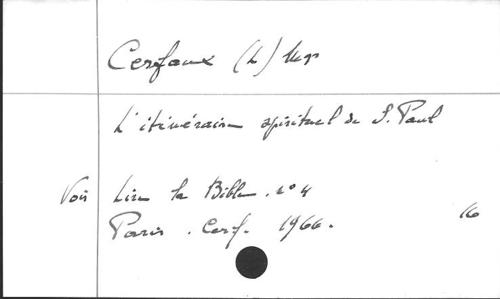 Cerfaux (L) Mgr
L'itinéraire spirituel de S. Paul
Voir Lire la Bible. n° 4
Paris. Cerf. 1966.
16